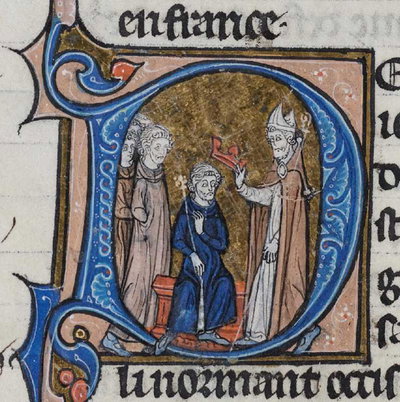 en france·
li normant occis